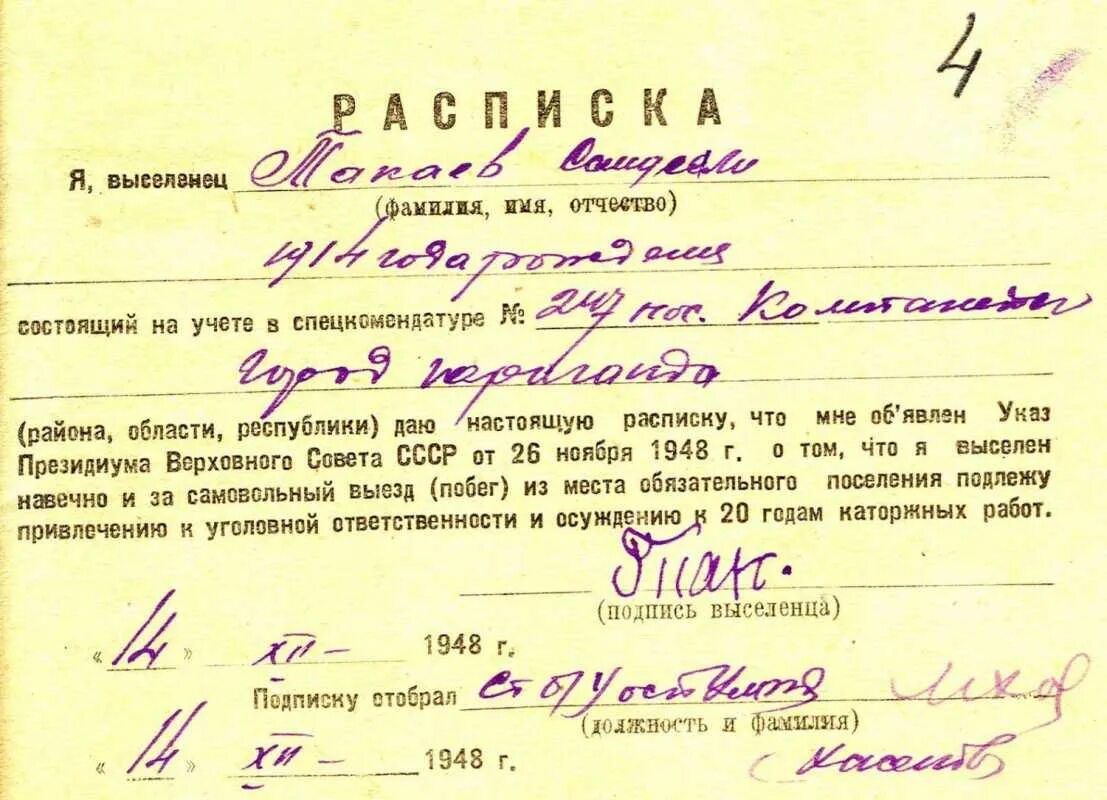 4
РАСПИСКА
Я, выселенец Такаев
(фамилия, имя, отчество)
1914 года рождения
состоящий на учете в спецкомендатуре № 247 пос.
город Караганда
(района, области, республики) даю настоящую расписку, что мне об'явлен Указ
Президиума Верховного Совета СССР от 26 ноября 1948 г. о том, что я выселен
навечно и за самовольный выезд (побег) из места обязательного поселения подлежу
привлечению к уголовной ответственности и осуждению к 20 годам каторжных работ.
Такк.
(подпись выселенца)
«14» XII – 1948 г.
Подписку отобрал
(должность и фамилия)
«14» XII – 1948 г.